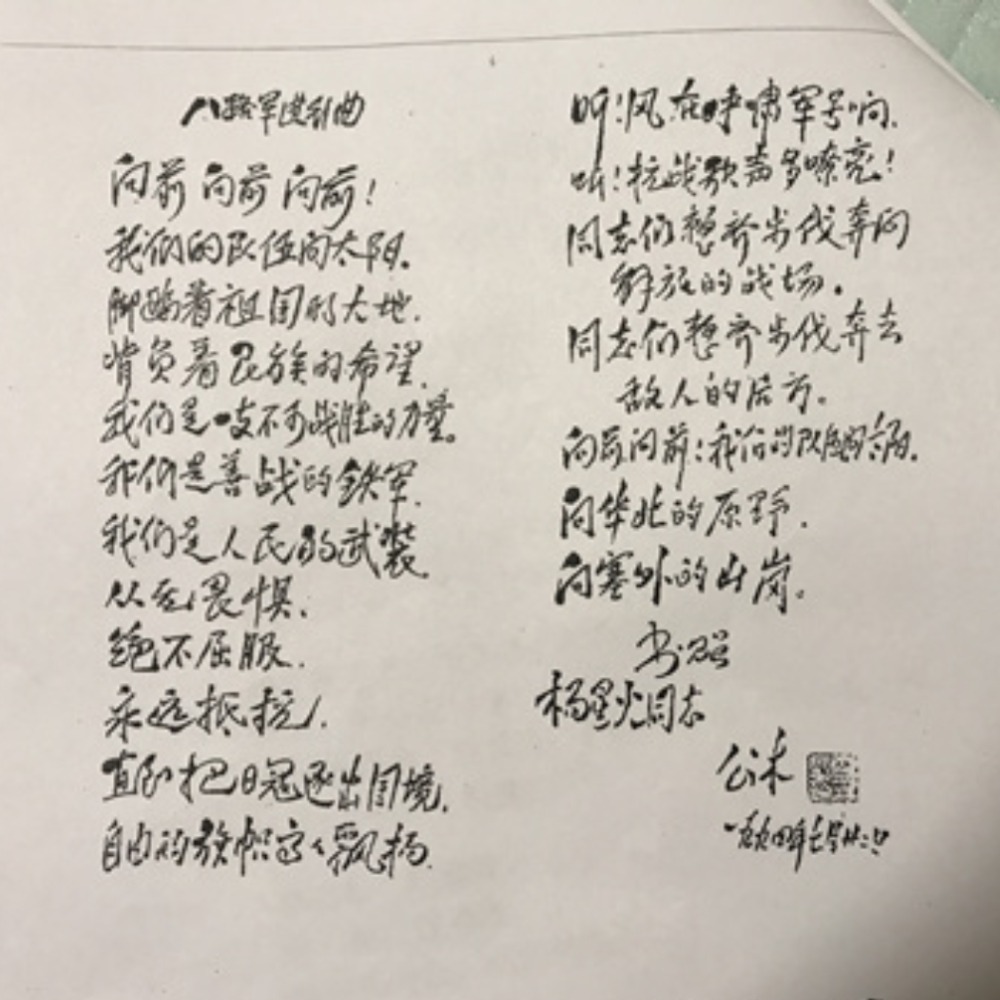 八路军进行曲
向前向前向前！
我们的队伍向太阳．
脚踏着祖国的大地．
背负着民族的希望．
我们是一支不可战胜的力量。
我们是善战的铁军．
我们是人民的武装
从无畏惧．
绝不屈服．
永远抵抗．
直到把日寇逐出国境．
自由的旗帜高々飘扬．
听！风在呼啸军号响．
听！抗战歌声多嘹亮！
同志们整齐步伐奔向
解放的战场。
同志们整齐步伐奔去
敌人的后方。
向前向前！我们的队伍向太阳．
向华北的原野．
向塞外的山岗。
书赠
杨星火同志
公木
一九九四年七月廿六日